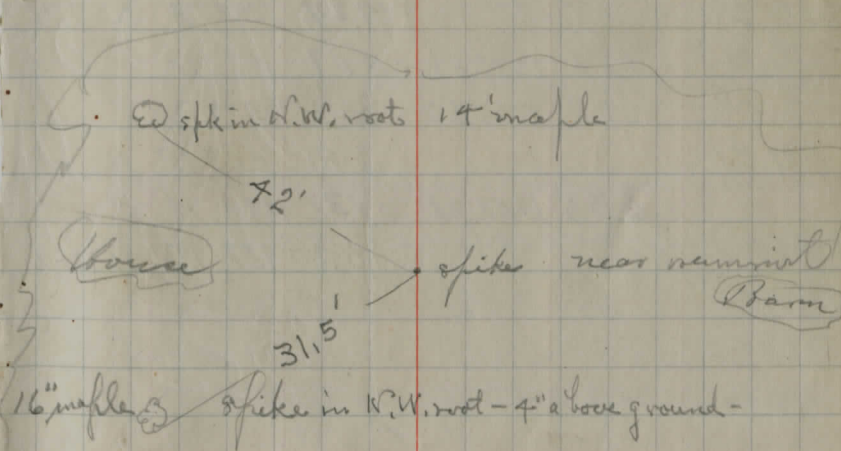 spk in N.W. root 14" maple
42'
House
spike near summit
Barn
31.5'
16" maple spike in N.W. root - 4" above ground -